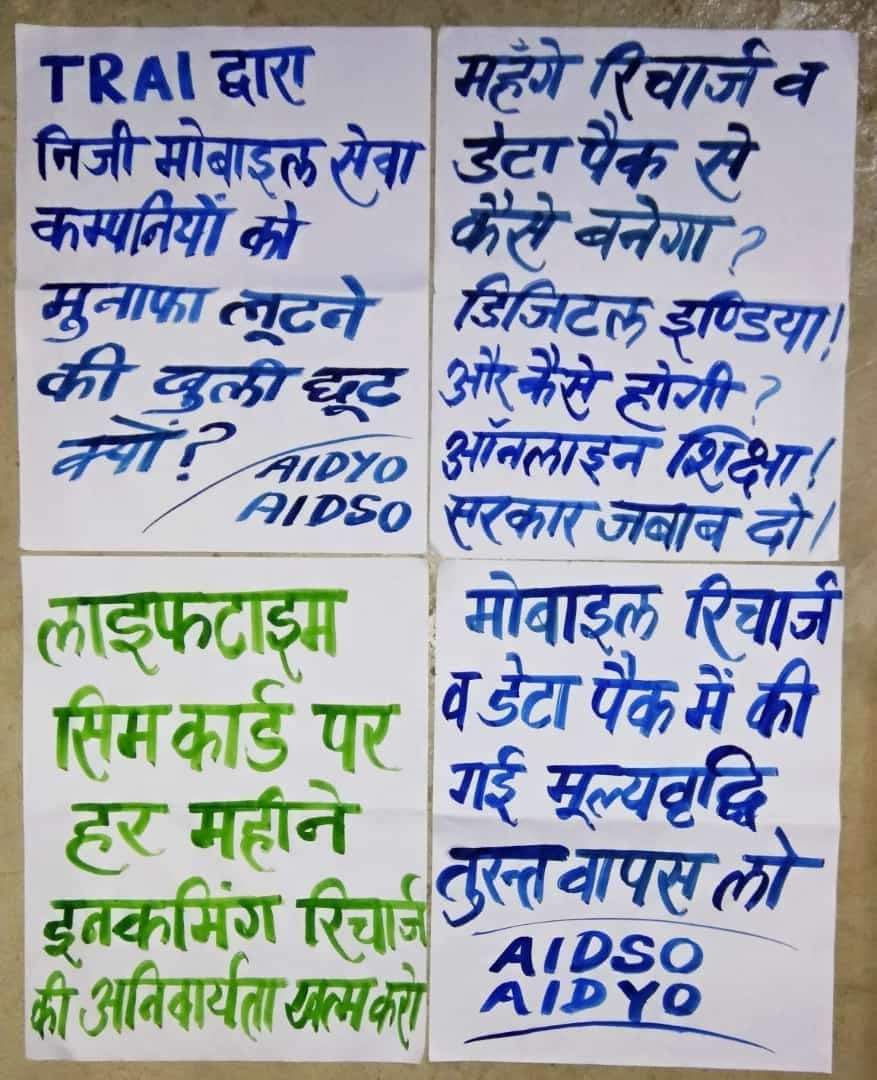 TRAI द्वारा
निजी मोबाइल सेवा
कम्पनियों को
मुनाफा लूटने
की खुली छूट
क्यों?
AIDYO
AIDSO
महँगे रिचार्ज व
डेटा पैक से
कैसे बनेगा?
डिजिटल इण्डिया!
और कैसे होगी?
ऑनलाइन शिक्षा!
सरकार जबाब दो!
लाइफटाइम
सिम कार्ड पर
हर महीने
इनकमिंग रिचार्ज
की अनिवार्यता खत्म करो
मोबाइल रिचार्ज
व डेटा पैक में की
गई मूल्यवृद्धि
तुरन्त वापस लो
AIDSO
AIDYO